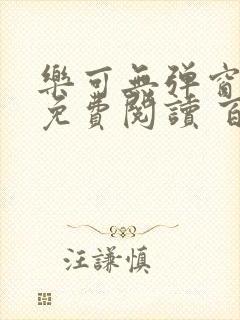 樂可無弹窗
免費閱讀 百
汪謙慎